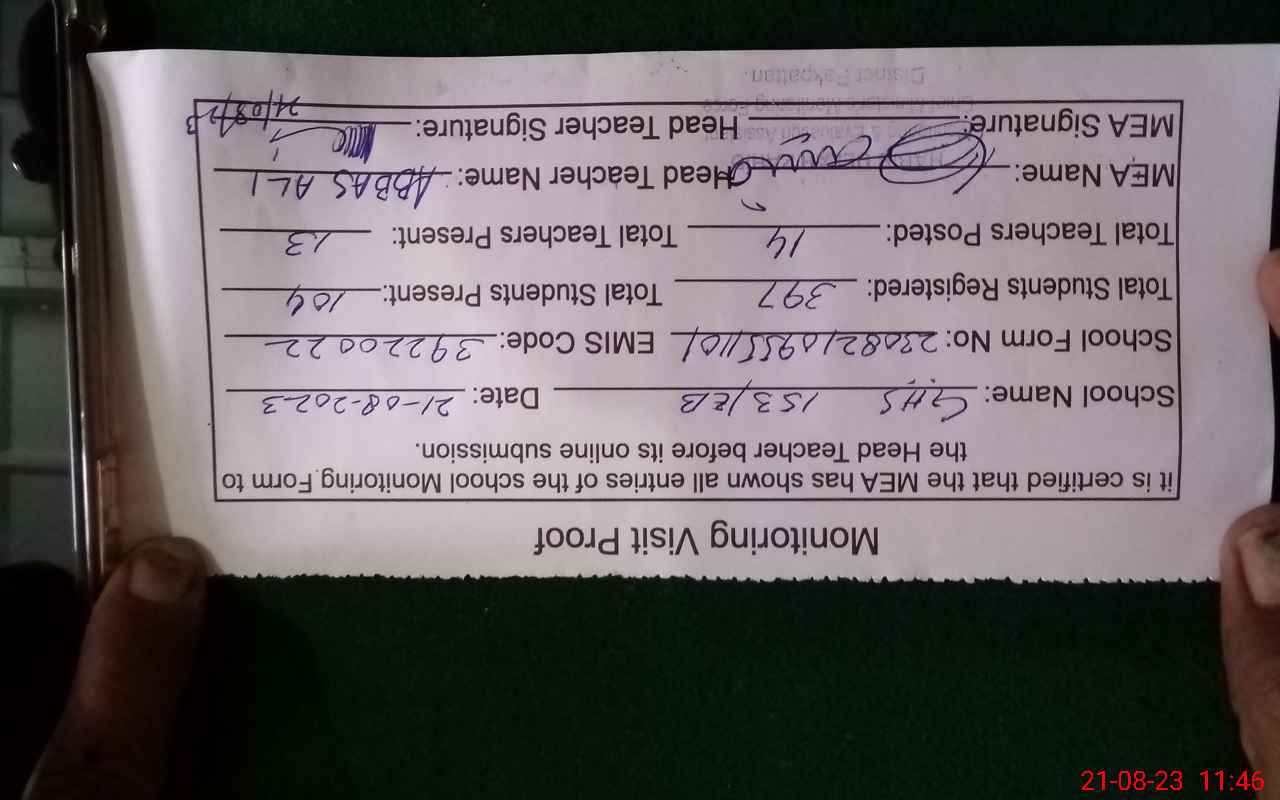 Monitoring Visit Proof
it is certified that the MEA has shown all entries of the school Monitoring Form to
the Head Teacher before its online submission.
School Name: GHS 153/EB Date: 21-08-2023
School Form No: 23082109551101 EMIS Code: 39220022
Total Students Registered: 397 Total Students Present: 104
Total Teachers Posted: 14 Total Teachers Present: 13
MEA Name: Head Teacher Name: ABBAS ALI
MEA Signature: Head Teacher Signature: 21/08/23
District Pakpattan.
21-08-23 11:46